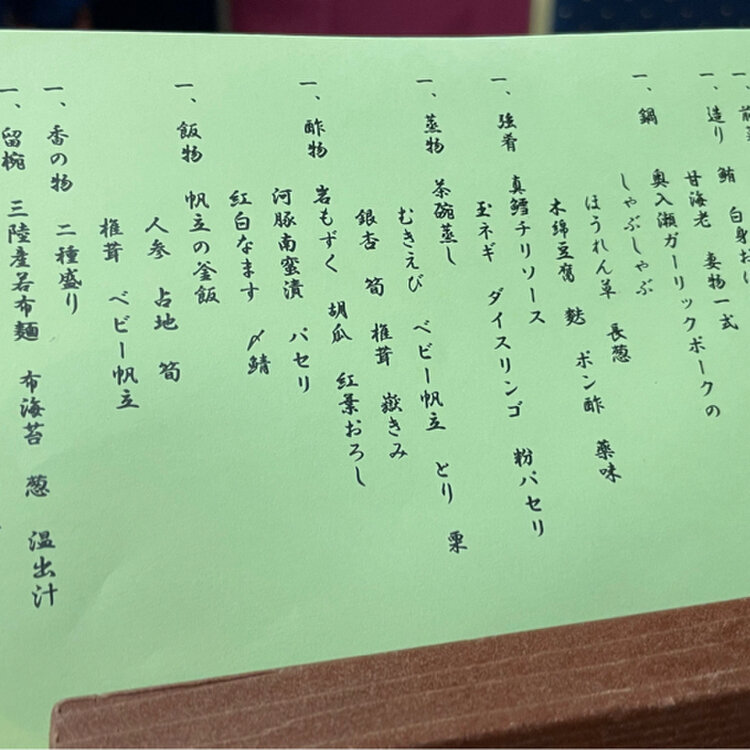 一、前
一、造り 鮪 白身
甘海老 妻物一式
一、鍋 奥入瀬ガーリックポークの
しゃぶしゃぶ
ほうれん草 長葱
木綿豆腐 麩 ポン酢 薬味
一、強肴 真鱈チリソース
玉ネギ ダイスリンゴ 粉パセリ
一、蒸物 茶碗蒸し
むきえび ベビー帆立 とり 栗
銀杏 筍 椎茸 嶽きみ
一、酢物 岩もずく 胡瓜 紅葉おろし
河豚南蛮漬 パセリ
紅白なます 〆鯖
一、飯物 帆立の釜飯
人参 占地 筍
椎茸 ベビー帆立
一、香の物 二種盛り
一、留椀 三陸産若布麺 布海苔 葱 温出汁